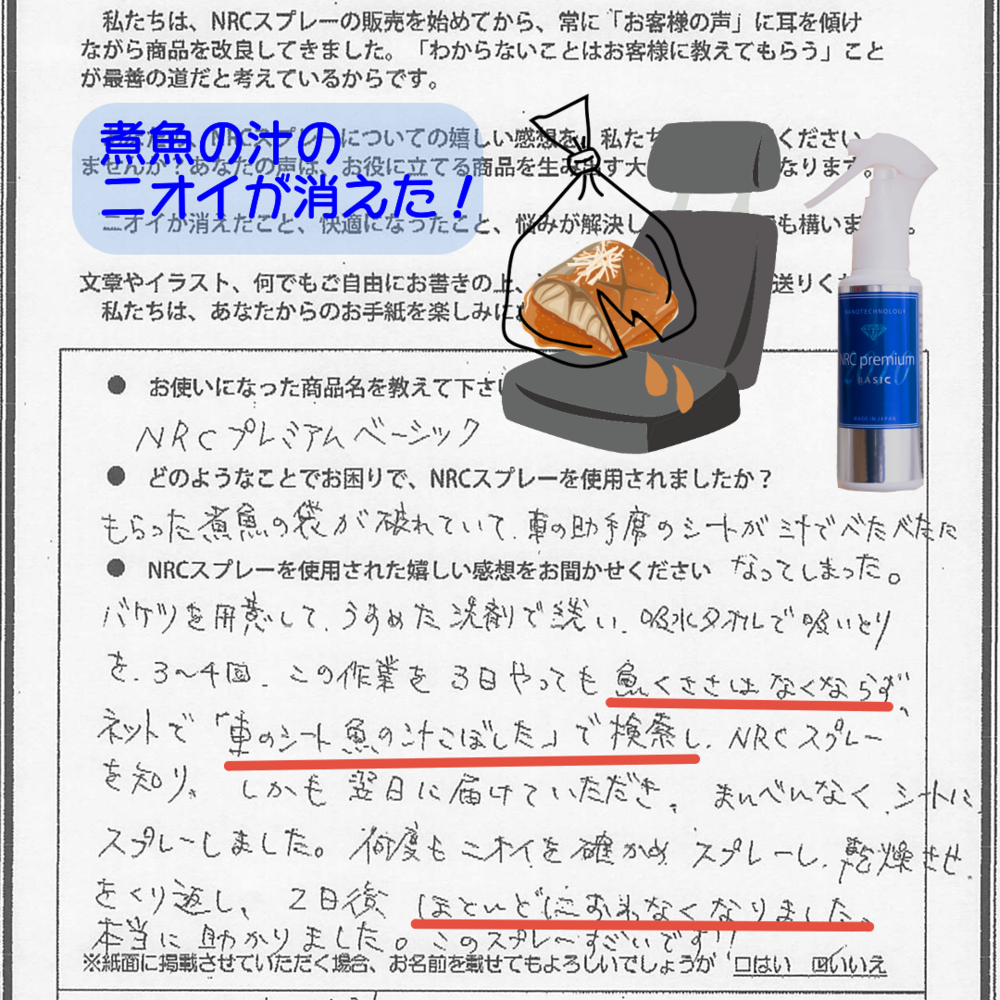 私たちは、NRCスプレーの販売を始めてから、常に「お客様の声」に耳を傾け
ながら商品を改良してきました。「わからないことはお客様に教えてもらう」こと
が最善の道だと考えているからです。
煮魚の汁の
ニオイが消えた！
NRCスプレーについての嬉しい感想を、私たち
ください
ませんか？あなたの声は、お役に立てる商品を生み
す大
なります。
ニオイが消えたこと、快適になったこと、悩みが解決し
も構いま
文章やイラスト、何でもご自由にお書きの上、
送りくだ
私たちは、あなたからのお手紙を楽しみに
NANOTECHNOLOGY
NRC premium
BASIC
MADE IN JAPAN
● お使いになった商品名を教えて下さ
NRCプレミアムベーシック
● どのようなことでお困りで、NRCスプレーを使用されましたか？
もらった煮魚の袋が破れていて、車の助手席のシートが汁でべたべたに
● NRCスプレーを使用された嬉しい感想をお聞かせください なってしまった。
バケツを用意して、うすめた洗剤で洗い、吸水タオルで吸いとり
を、3〜4回、この作業を3日やっても魚くささはなくならず、
ネットで「車のシート魚の汁こぼした」で検索し、NRCスプレー
を知り、しかも翌日に届けていただき、まんべんなく、シートに
スプレーしました。何度もニオイを確かめ スプレーし、乾燥させ、
をくり返し、2日後 ほとんどにおわなくなりました、
本当に助かりました。このスプレーすごいです!!
※紙面に掲載させていただく場合、お名前を載せてもよろしいでしょうか □はい ☑いいえ